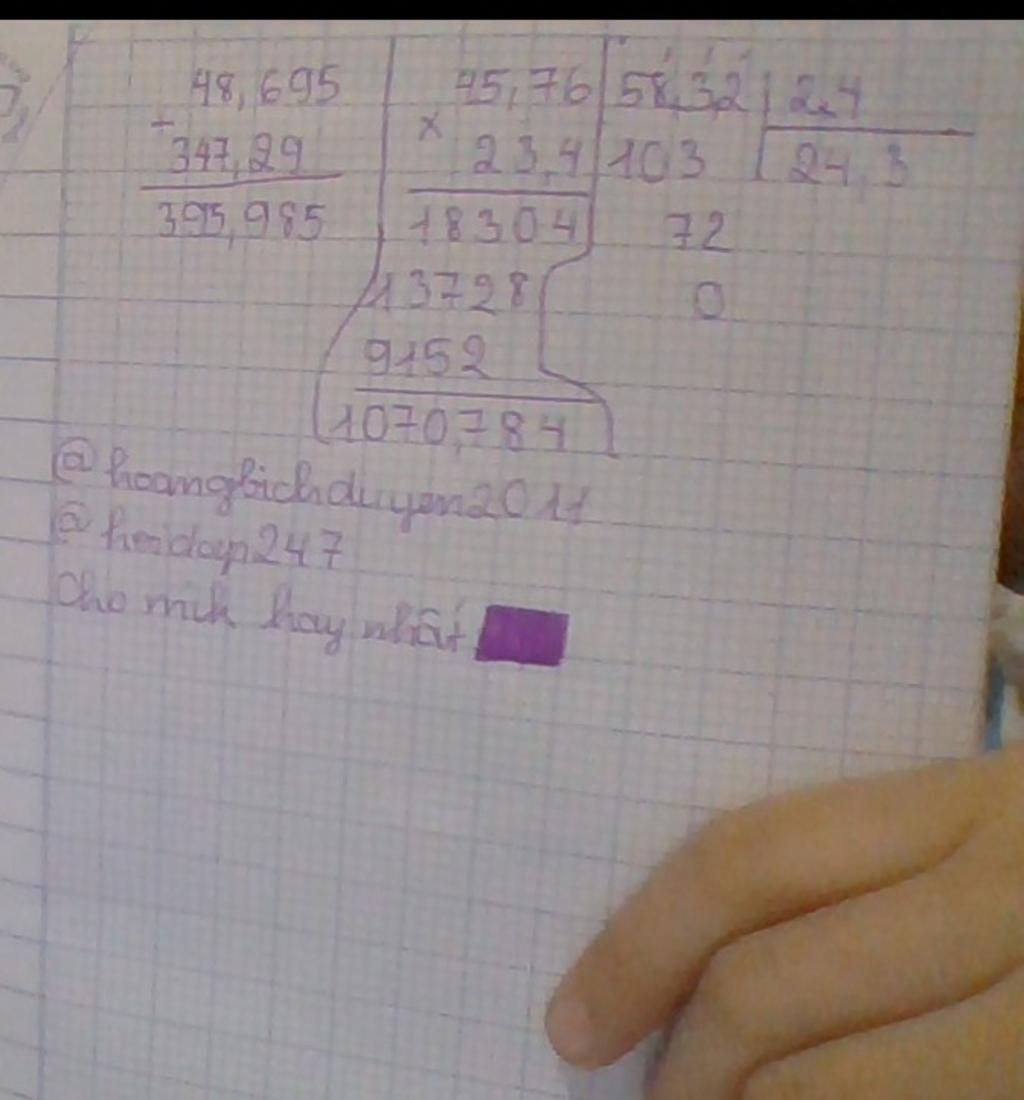 48,695
+
347,29
395,985
45,76
×
23,4
18304
13728
9152
1070,784
58,3,2 2,4
103 24,3
72
0
@hoangbichduyen2011
@hoidap247
Cho mik hay nhất